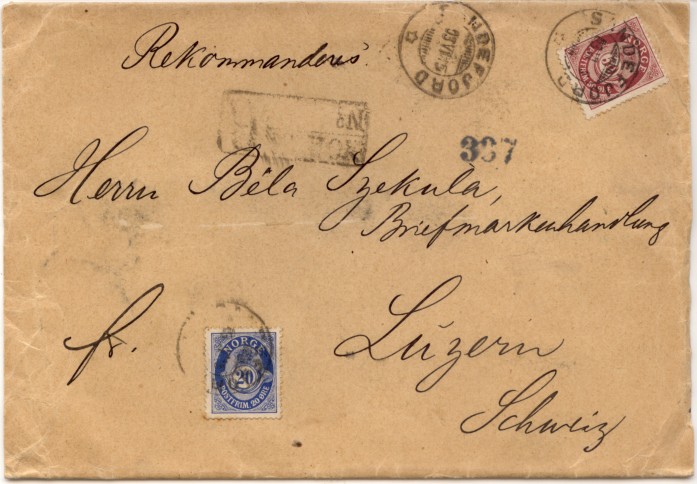 Rekommanderes
SANDEFJORD
SANDEFJORD
NORGE
No
337
Herrn Béla Szekula,
Briefmarkenhandlung
fr.
NORGE
20
POSTFRIM. 20 ØRE
Luzern
Schweiz